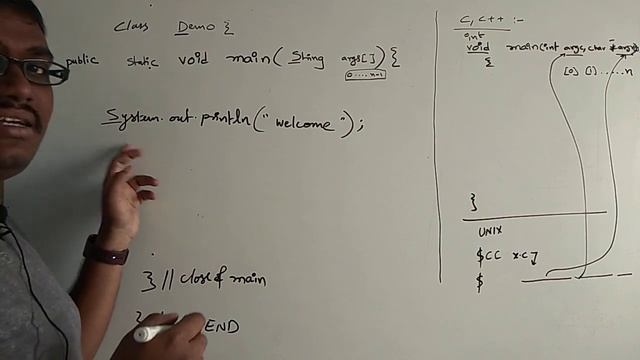 class Demo {
public static void main( String args[] ) {
0.....n-1
System.out.println("Welcome");
} // close of main
} END
C, C++ :-
int
void main(int args, char *args)
{ [0] [1].....n
}
UNIX
$CC x.c
$